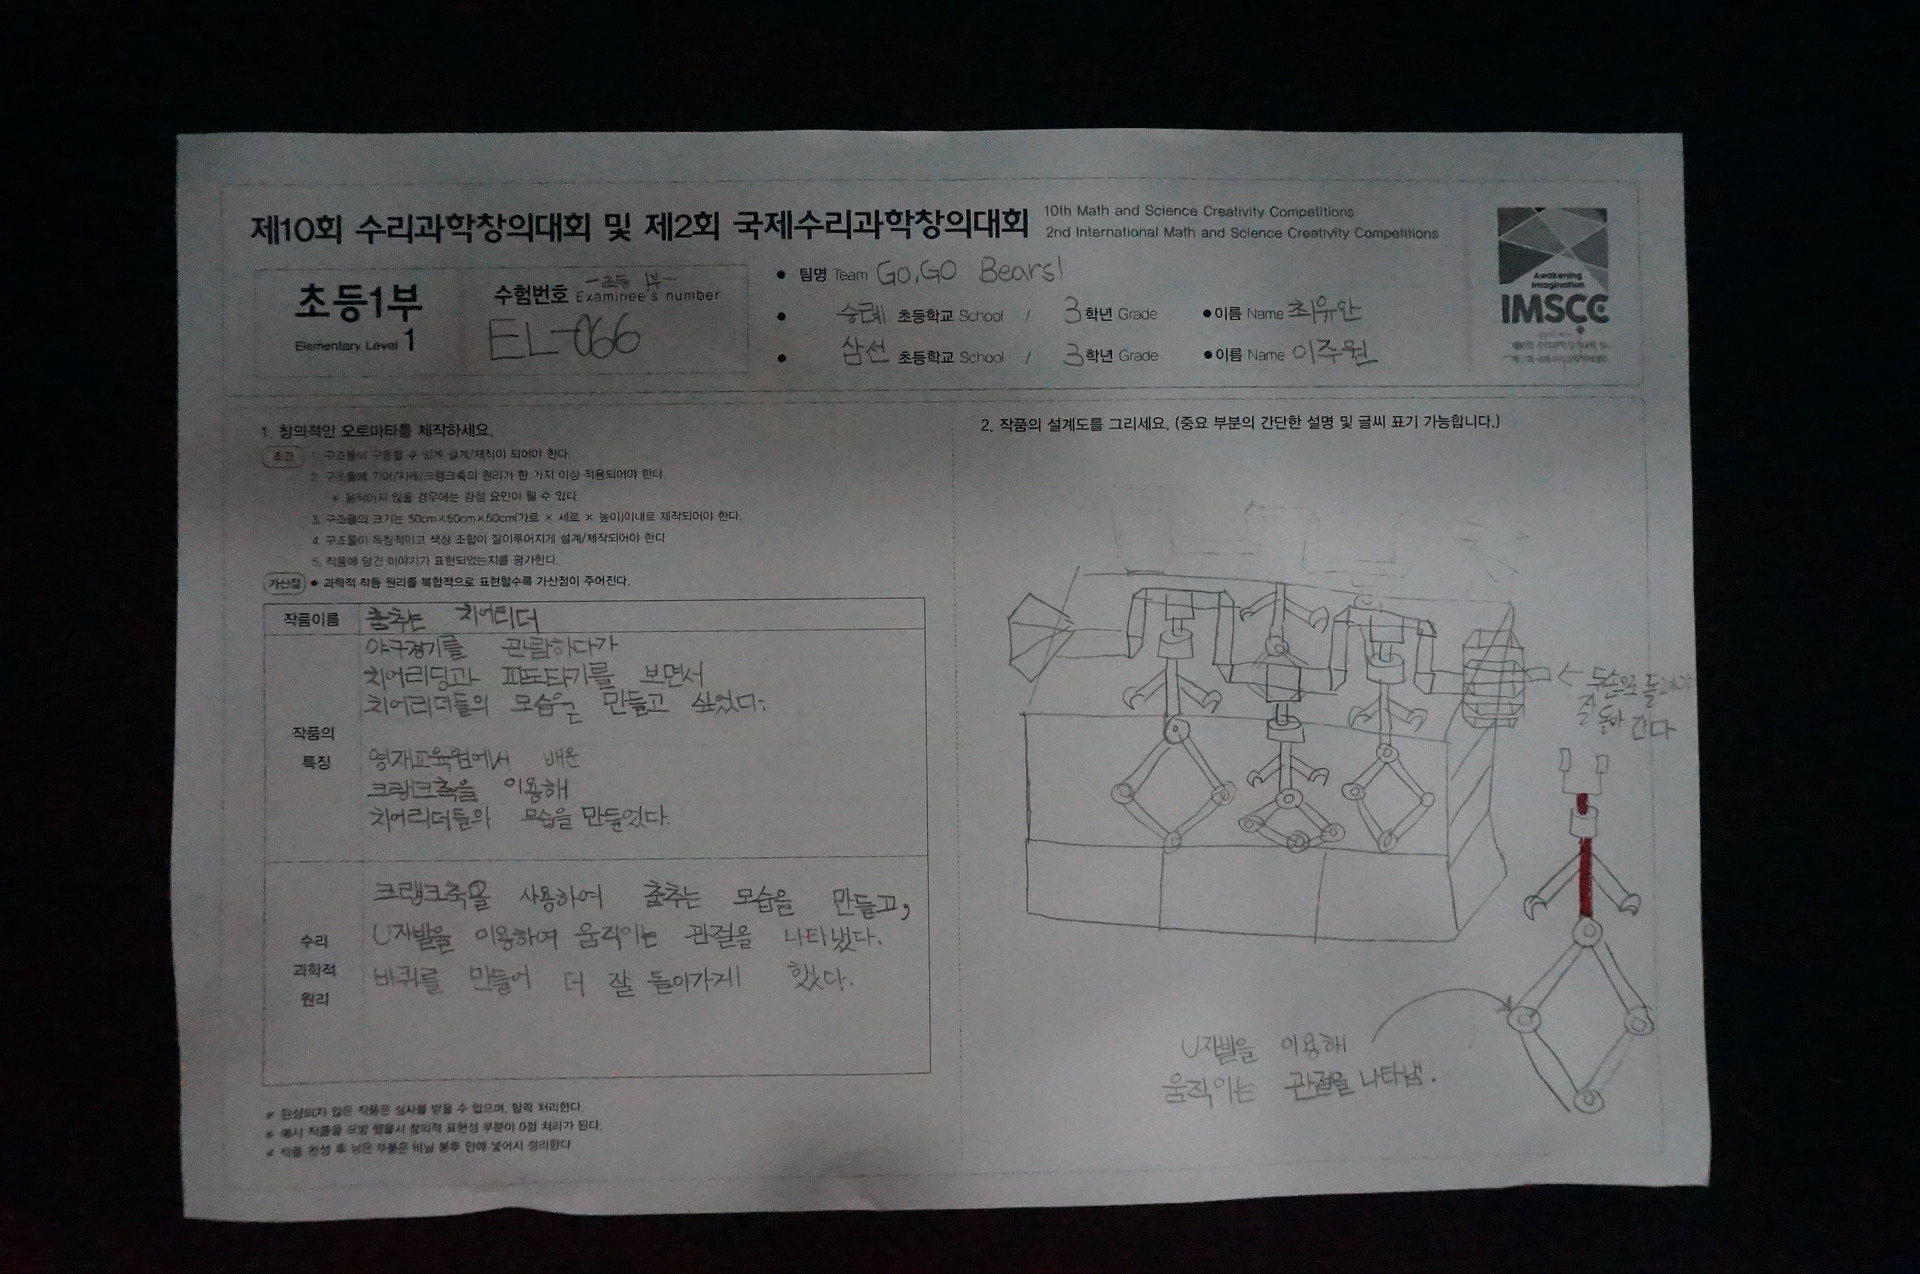 제10회 수리과학창의대회 및 제2회 국제수리과학창의대회
10th Math and Science Creativity Competitions
2nd International Math and Science Creativity Competitions
초등1부
Elementary Level 1
-초등 1부-
수험번호 Examinee's number
EL-066
• 팀명 Team Go,GO Bears!
• 숭례 초등학교 School / 3학년 Grade • 이름 Name 최유안
• 삼선 초등학교 School / 3학년 Grade • 이름 Name 이주원
Awakening
Imagination
IMSCC
1. 창의적인 오토마타를 제작하세요.
조건 1. 구조물이 구동될 수 있게 설계/제작이 되어야 한다.
2. 구조물에 기어/지레/크랭크축의 원리가 한 가지 이상 적용되어야 한다.
* 움직이지 않을 경우에는 감점 요인이 될 수 있다.
3. 구조물의 크기는 50cm×50cm×50cm(가로 × 세로 × 높이)이내로 제작되어야 한다.
4. 구조물이 독창적이고 색상 조합이 잘이루어지게 설계/제작되어야 한다.
5. 작품에 담긴 이야기가 표현되었는지를 평가한다.
가산점 • 과학적 작동 원리를 복합적으로 표현할수록 가산점이 주어진다.
작품이름 춤추는 치어리더
작품의
특징
야구경기를 관람하다가
치어리딩과 파도타기를 보면서
치어리더들의 모습을 만들고 싶었다.
영재교육원에서 배운
크랭크축을 이용해
치어리더들의 모습을 만들었다.
수리
과학적
원리
크랭크축을 사용하여 춤추는 모습을 만들고,
U자발을 이용하여 움직이는 관절을 나타냈다.
바퀴를 만들어 더 잘 돌아가게 했다.
※ 완성되지 않은 작품은 심사를 받을 수 없으며, 탈락 처리한다.
※ 예시 작품을 모방 했을시 창의적 표현성 부분이 0점 처리가 된다.
※ 작품 완성 후 남은 부품은 비닐 봉투 안에 넣어서 정리한다.
2. 작품의 설계도를 그리세요. (중요 부분의 간단한 설명 및 글씨 표기 가능합니다.)
← 두손으로 돌려야
잘 돌아 간다
U자발을 이용해
움직이는 관절을 나타냄.